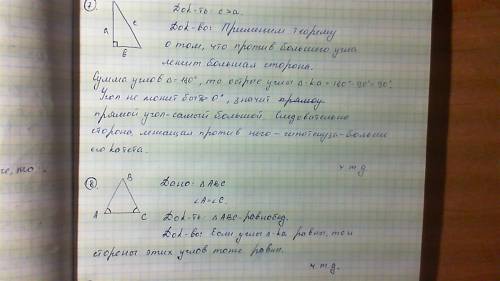 7.
Док-ть c>a.
a
c
в
Док-во: Применим теорему
о том, что против большего угла
лежит большая сторона.
Сумма углов Δ=180°, то острые углы Δ-ка =180°-90°=90°.
Угол не может быть 0°, значит прямоу
прямой угол-самый большой. Следовательно
сторона, лежащая против него-гипотенуза-больше
его катета.
ч.т.д
8.
B
A
C
Дано: ΔABC
∠A=∠C.
Док-ть: ΔABC-равнобед.
Док-во: Если углы Δ-ка равны, то и
стороны этих углов тоже равны.
ч.т.д.